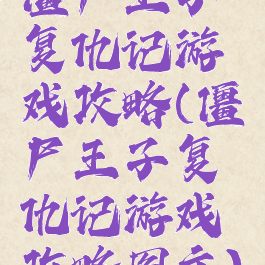 僵尸王子
复仇记游
戏攻略(僵
尸王子复
仇记游戏
攻略图文)